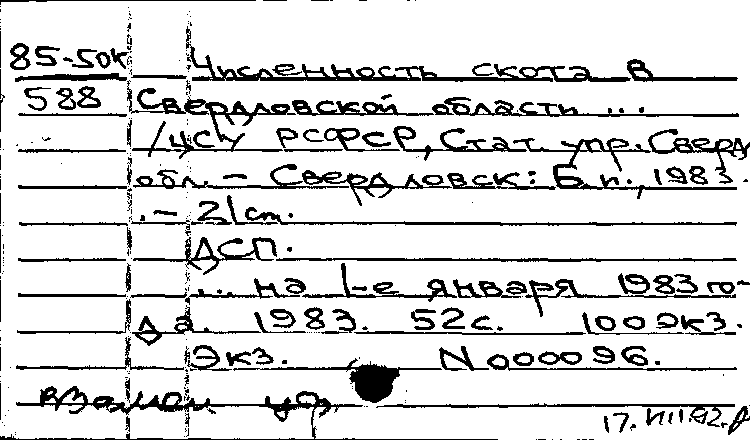 85-50к Численность скота в
588 Свердловской области ...
/ЦСУ РСФСР, Стат. упр. Сверд
обл. - Свердловск: Б.и., 1983.
.- 21 см.
ДСП.
... на 1-е января 1983 го-
да. 1983. 52с. 100 экз.
Экз. N 000096.
Взамен